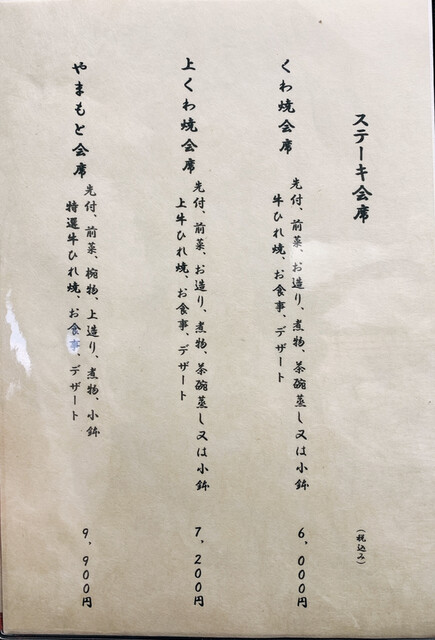 ステーキ会席
（税込み）
くわ焼会席
先付、前菜、お造り、煮物、茶碗蒸し又は小鉢
牛ひれ焼、お食事、デザート
6,000円
上くわ焼会席
先付、前菜、お造り、煮物、茶碗蒸し又は小鉢
上牛ひれ焼、お食事、デザート
7,200円
やまもと会席
先付、前菜、椀物、上造り、煮物、小鉢
特選牛ひれ焼、お食事、デザート
9,900円